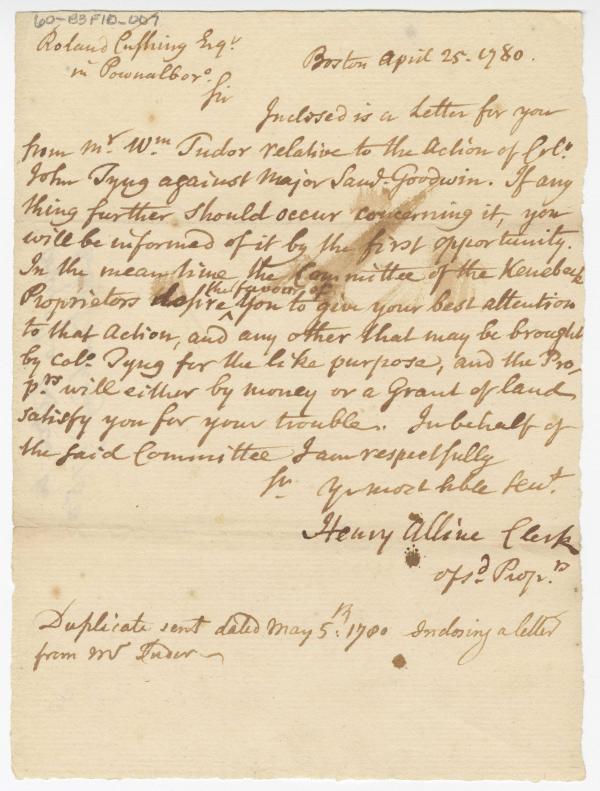 60-B3F10-007
Roland Cushing Esqr
in Pownalboro.
Boston April 25. 1780.
Sir
Inclosed is a Letter for you
from mr. Wm Tudor relative to the Action of Colo.
John Tyng against Major Saml. Goodwin. If any
thing further should occur concerning it, you
will be informed of it by the first opportunity.
In the mean time the Committee of the Kenebeck
the favour of
Proprietors desire ^ you to give your best attention
to that Action, and any other that may be brought
by colo. Tyng for the like purpose, and the Pro,
prs will either by money or a Grant of land
satisfy you for your trouble. In behalf of
the said Committee I am respectfully
Sir Yr most hble Servt.
Henry Alline Clerk
of sd Proprs
Duplicate sent dated May 5th. 1780 Inclosing a letter
from Mr Tudor